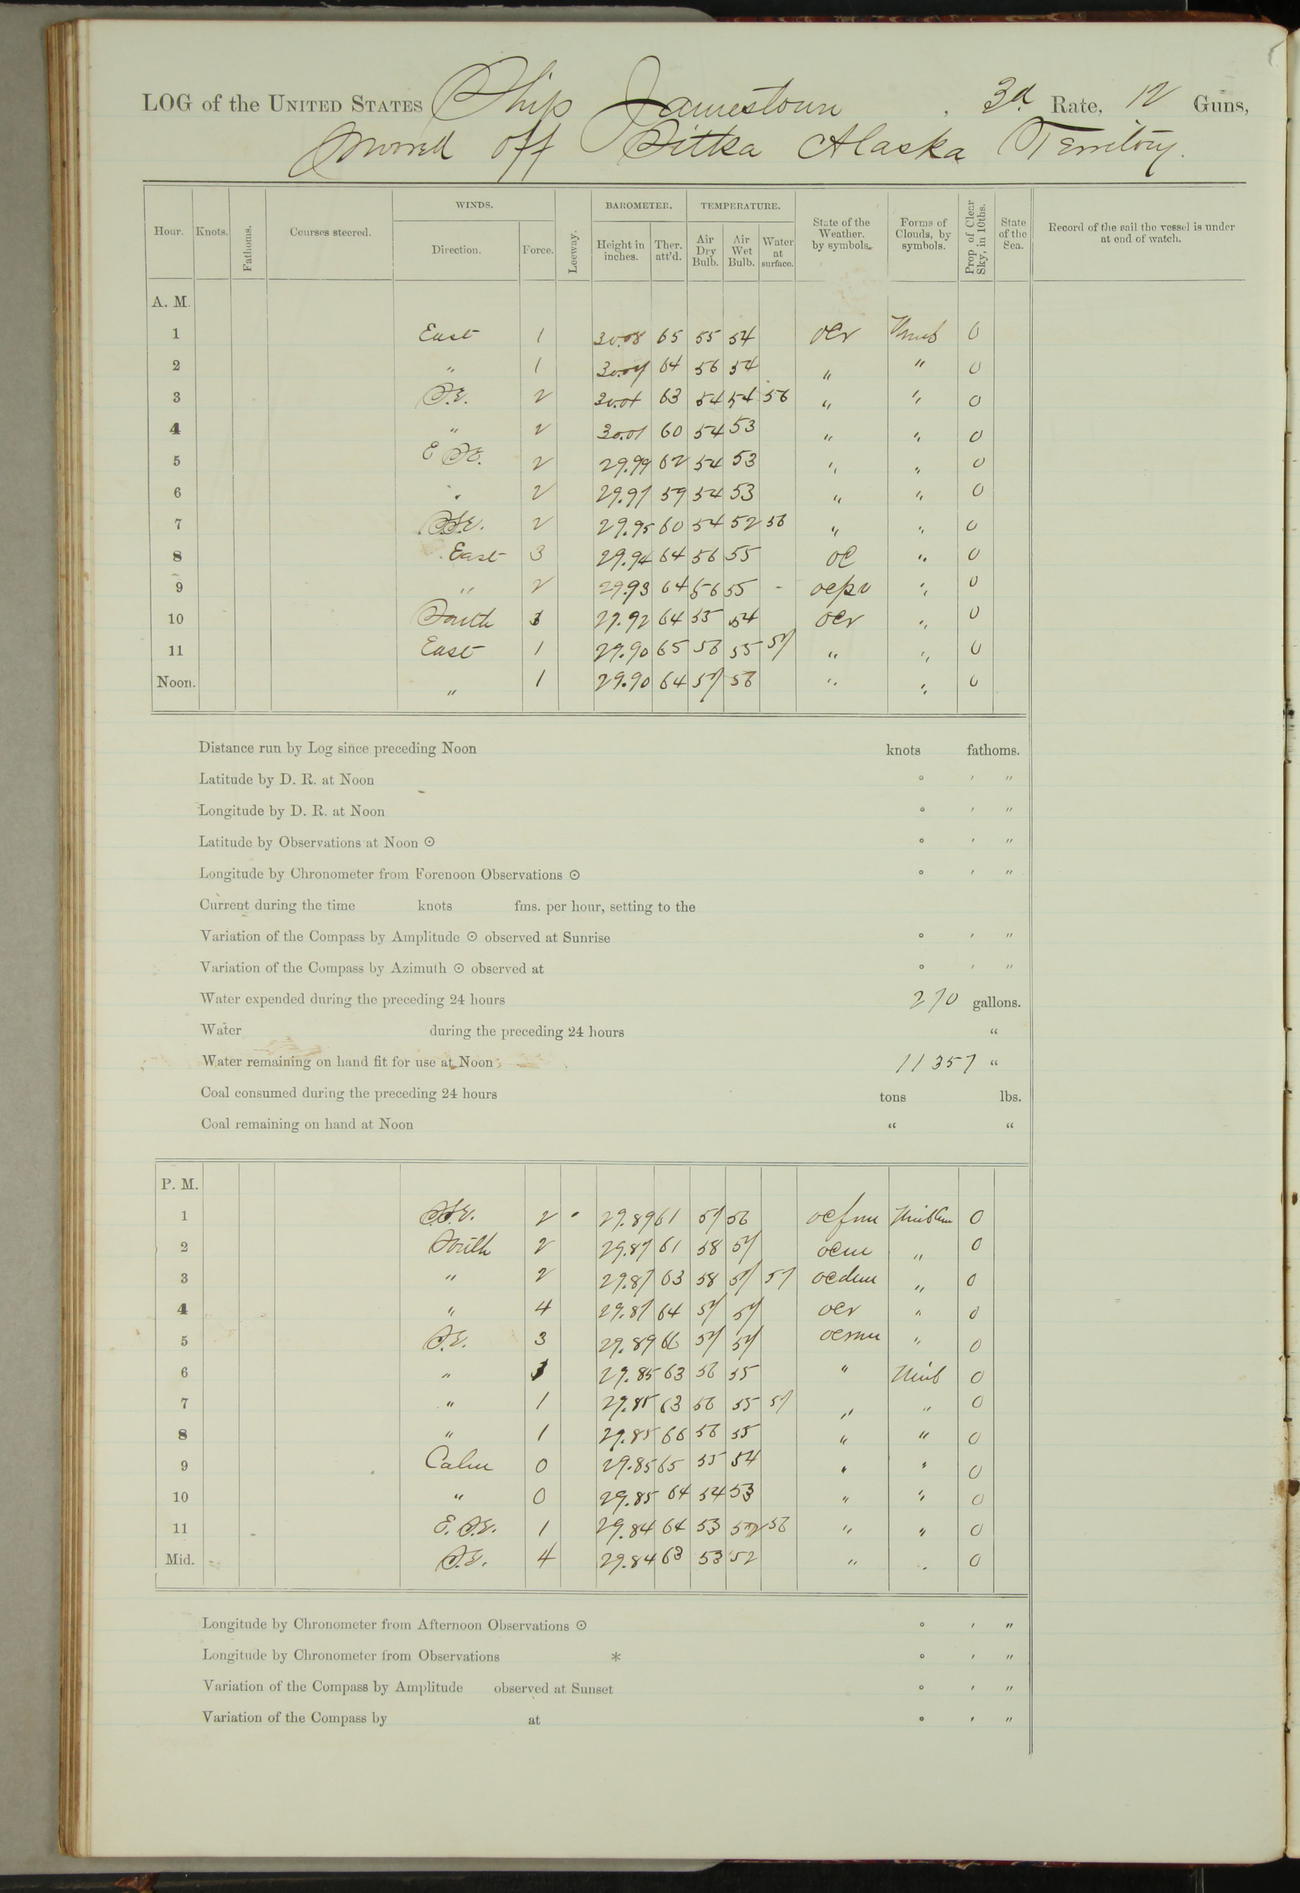 LOG of the UNITED STATES Ship Jamestown, 3d Rate, 12 Guns,
Moored off Sitka Alaska Territory.
Hour. Knots. Fathoms. Courses steered. WINDS. Direction. Force. Leeway. BAROMETER. Height in inches. Ther. att'd. TEMPERATURE. Air Dry Bulb. Air Wet Bulb. Water at surface. State of the Weather. by symbols. Forms of Clouds, by symbols. Prop. of Clear Sky, in 10ths. State of the Sea. Record of the sail the vessel is under at end of watch.
A. M.
1 East 1 30.08 65 55 54 ocr Nimb 0
2 " 1 30.04 64 56 54 " " 0
3 S.E. 2 30.01 63 54 54 56 " " 0
4 " 2 30.01 60 54 53 " " 0
5 E SE. 2 29.99 62 54 53 " " 0
6 " 2 29.97 59 54 53 " " 0
7 SE. 2 29.95 60 54 52 56 " " 0
8 East 3 29.94 64 56 55 oc " 0
9 " 2 29.93 64 56 55 - ocpv " 0
10 South 1 29.92 64 55 54 ocr " 0
11 East 1 29.90 65 56 55 57 " " 0
Noon. " 1 29.90 64 57 56 " " 0
Distance run by Log since preceding Noon knots fathoms.
Latitude by D. R. at Noon ° ' "
Longitude by D. R. at Noon ° ' "
Latitude by Observations at Noon ⊙ ° ' "
Longitude by Chronometer from Forenoon Observations ⊙ ° ' "
Current during the time knots fms. per hour, setting to the
Variation of the Compass by Amplitude ⊙ observed at Sunrise ° ' "
Variation of the Compass by Azimuth ⊙ observed at ° ' "
Water expended during the preceding 24 hours 270 gallons.
Water during the preceding 24 hours "
Water remaining on hand fit for use at Noon 11357 "
Coal consumed during the preceding 24 hours tons lbs.
Coal remaining on hand at Noon " "
P. M.
1 SE. 2 29.89 61 57 56 0
2 South 2 29.87 61 58 57 ocm " 0
3 " 2 29.87 63 58 57 57 ocdm " 0
4 " 4 29.87 64 57 57 ocr " 0
5 S.E. 3 29.89 66 57 57 ocrm " 0
6 " 1 29.85 63 56 55 " Nimb 0
7 " 1 29.85 63 56 55 57 " " 0
8 " 1 29.85 66 56 55 " " 0
9 Calm 0 29.85 65 55 54 " " 0
10 " 0 29.85 64 54 53 " " 0
11 E.S.E. 1 29.84 64 53 52 56 " " 0
Mid. S.E. 4 29.84 63 53 52 " " 0
Longitude by Chronometer from Afternoon Observations ⊙ ° ' "
Longitude by Chronometer from Observations * ° ' "
Variation of the Compass by Amplitude observed at Sunset ° ' "
Variation of the Compass by at ° ' "